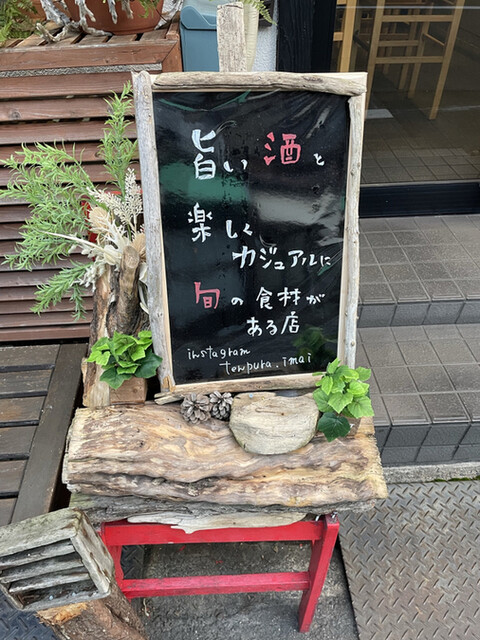 旨い酒と
楽しく
カジュアルに
旬の食材が
ある店
instagram
tenpura.imai